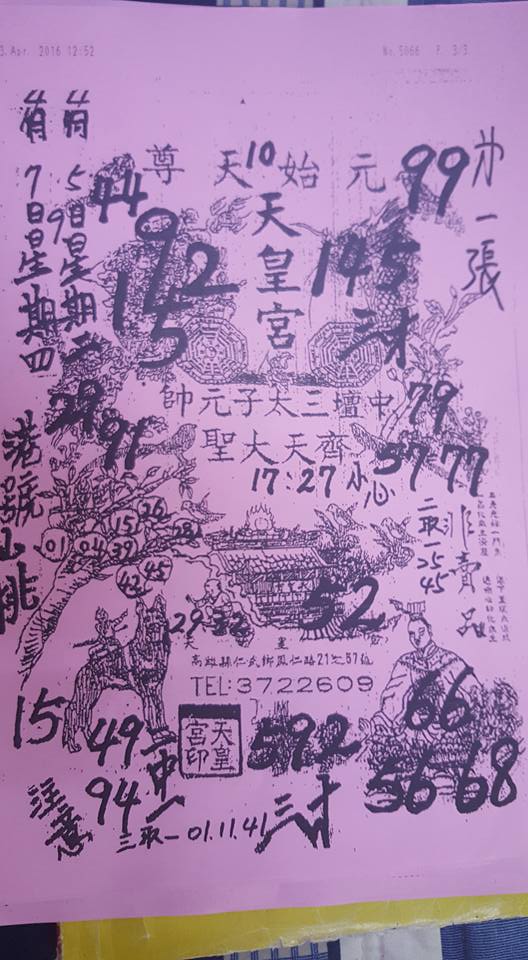 3.Apr. 2016 12:52
No.5066 P. 3/3
尊天始元
10
99
44
天皇宮
一張
5日星期二
9
7日星期四
192
5
145
帥元子太三壇中
79
聖大天齊
29
91
57 77
17:27 小心
港號
26
15
28
01
04
39
42
45
二取一25
45
非賣品
52
29
32
天皇宮
高雄縣仁武鄉鳳仁路21之57號
TEL:3722609
15
49
94
二中一
天皇宮印
592
66
56 68
注意
三取一01.11.41